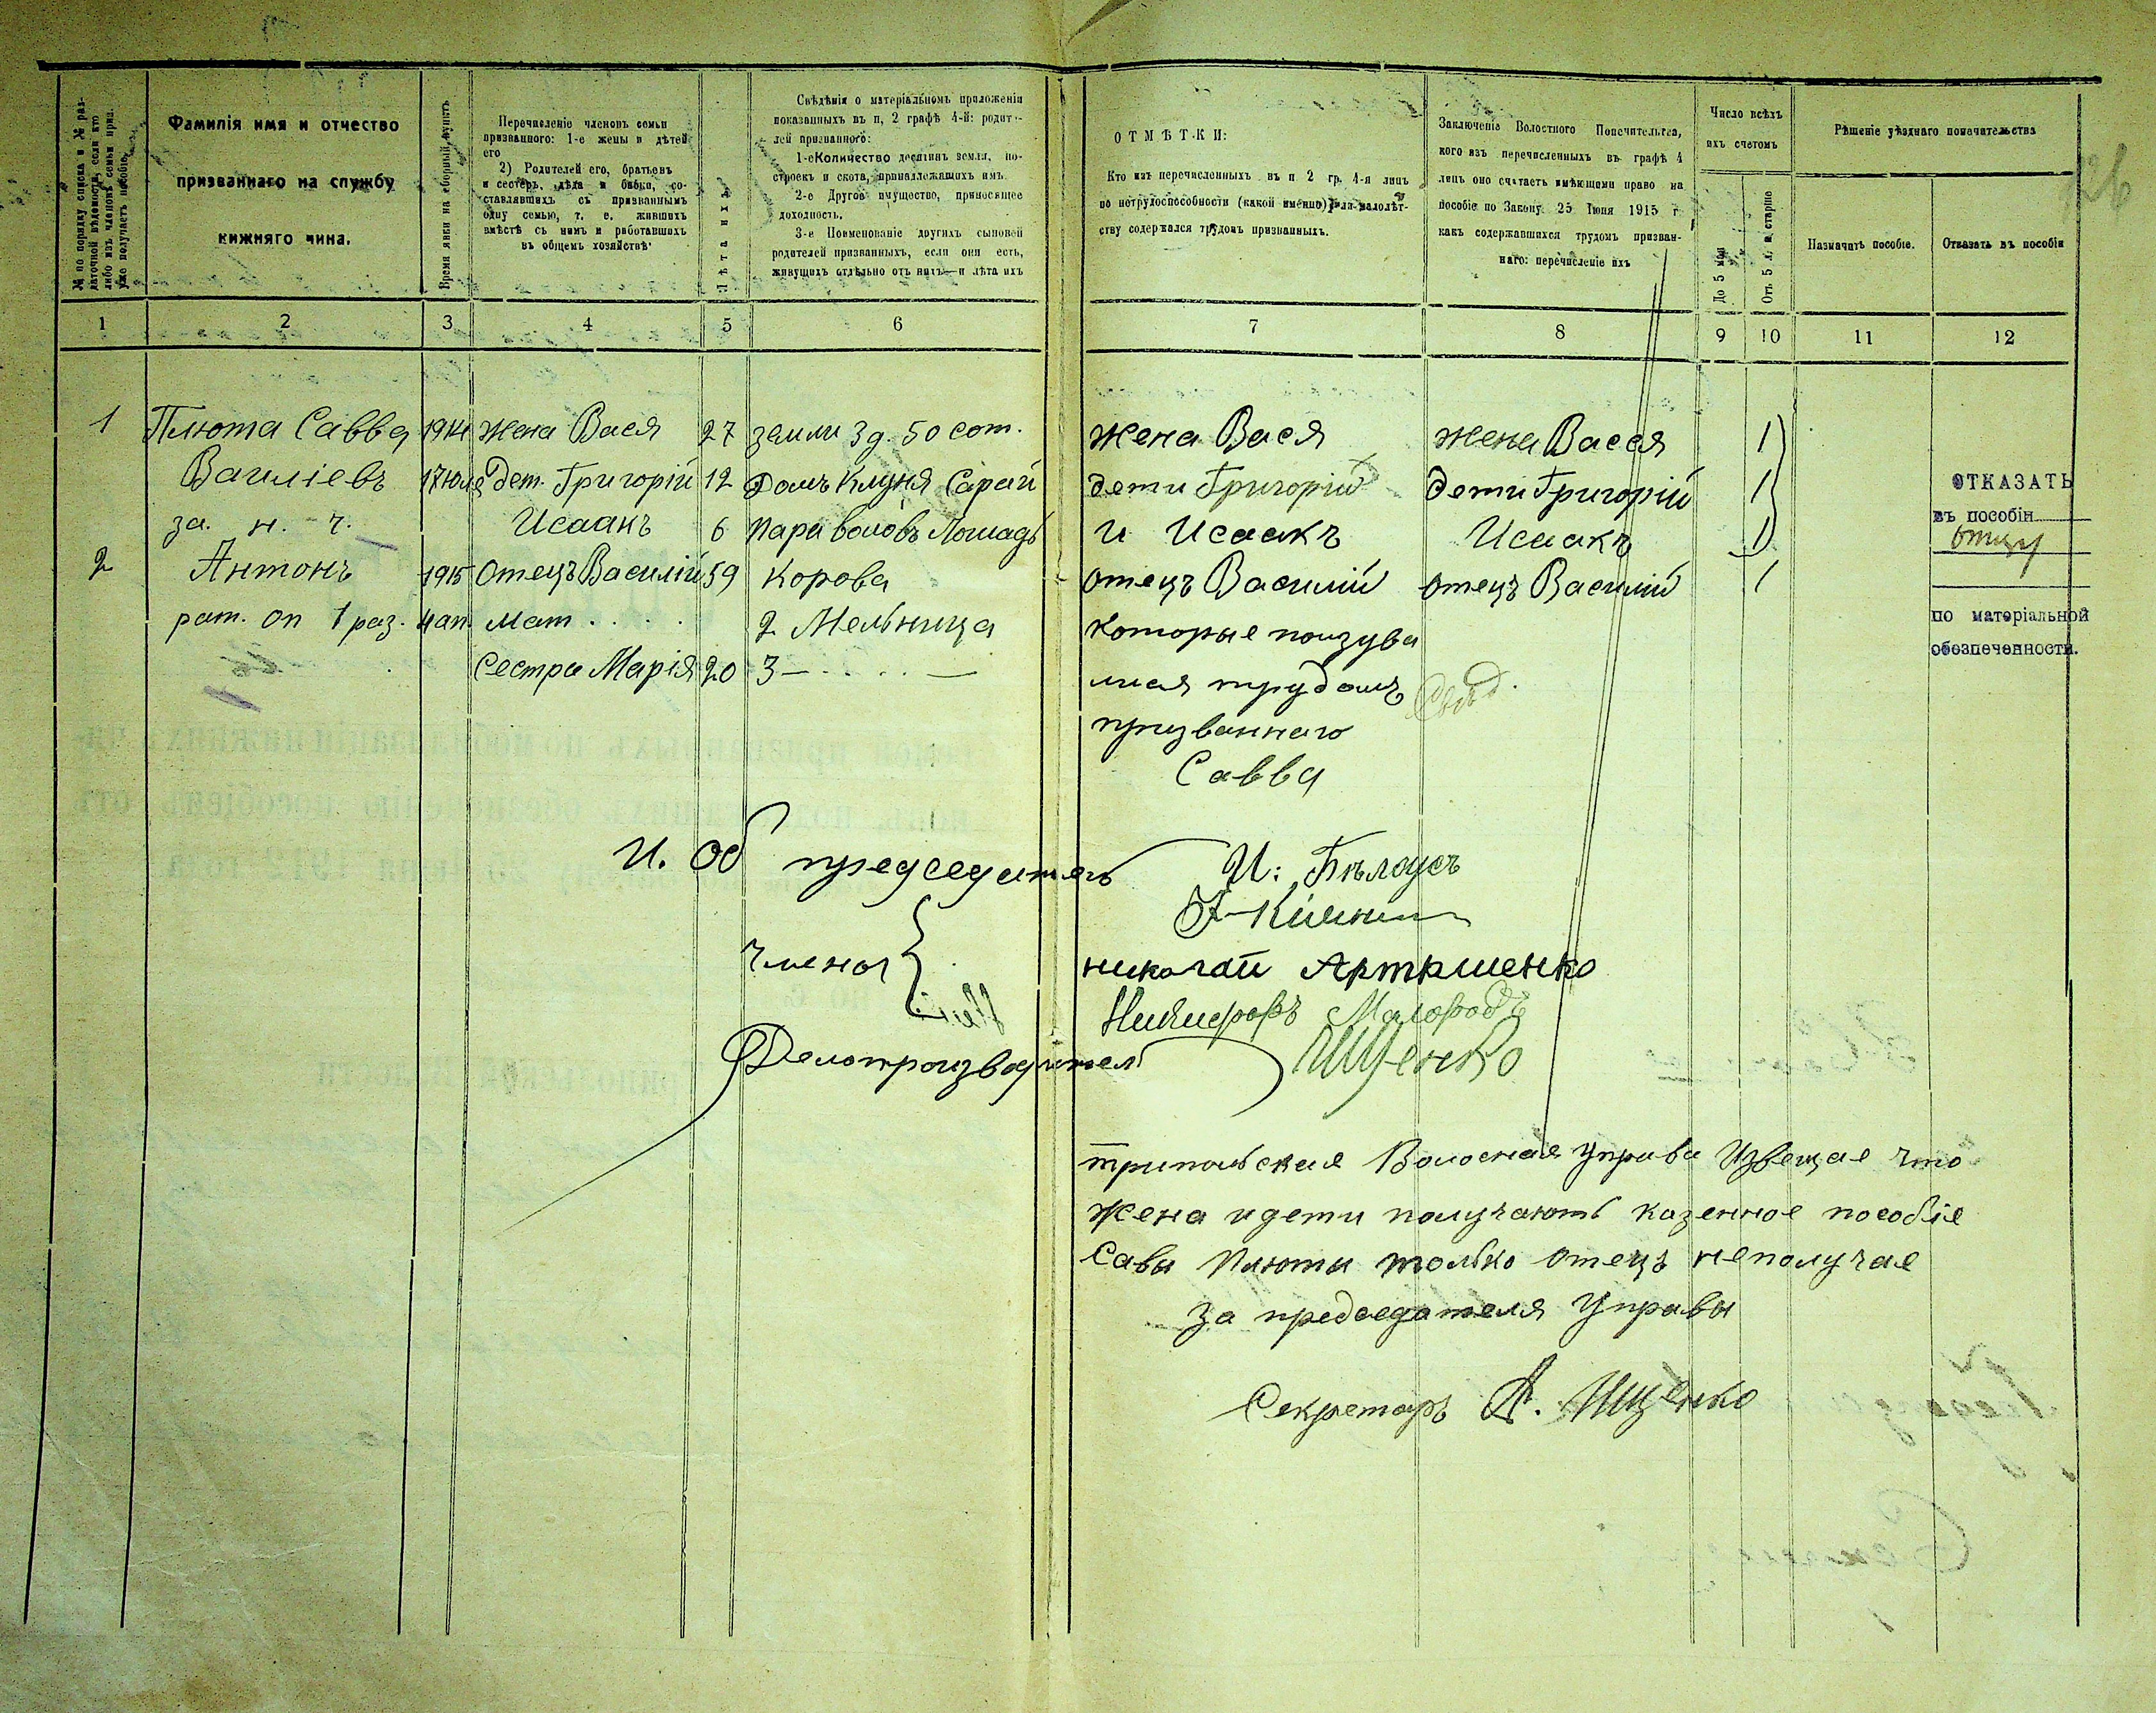 № по порядку списка и № раз-
даточной вѣдомости, если кто
либо изъ членовъ семьи приз.
уже получаетъ пособіе.
Фамилія имя и отчество
призваннаго на службу
нижняго чина.
Время явки на сборный пунктъ
Перечисленіе членовъ семьи
призваннаго: 1-е жены и дѣтей
его
2) Родителей его, братьевъ
и сестеръ, дѣда и бабки, со-
ставлявшихъ съ призваннымъ
одну семью, т. е. жившихъ
вмѣстѣ съ нимъ и работавшихъ
въ общемъ хозяйствѣ
Лѣта ихъ
Свѣдѣнія о матеріальномъ приложеніи
показанныхъ въ п, 2 графѣ 4-й: родите-
лей призваннаго:
1-е Количество десятинъ земли, по-
строекъ и скота, принадлежащихъ имъ.
2-е Другое имущество, приносящее
доходность.
3-е Поименованіе другихъ сыновей
родителей призванныхъ, если они есть,
живущихъ отдѣльно отъ нихъ—и лѣта ихъ
ОТМѢТКИ:
Кто изъ перечисленныхъ въ п 2 гр. 4-я лицъ
по нетрудоспособности (какой именно) или малолѣт-
ству содержался трудомъ призванныхъ.
Заключеніе Волостного Попечительства,
кого изъ перечисленныхъ въ графѣ 4
лицъ оно считаетъ имѣющими право на
пособіе по Закону 25 Іюня 1915 г
какъ содержавшихся трудомъ призван-
наго: перечисленіе ихъ
Число всѣхъ
ихъ счетомъ
До 5 мѣс
Отъ 5 л. и старше
Рѣшеніе уѣзднаго попечительства
Назначать пособіе.
Отказать въ пособіи
26
1 2 3 4 5 6 7 8 9 10 11 12
1 Плюта Савва 1914 жена Вася 27 земли 3 д. 50 сот. жена Вася жена Васся 1
Василіевъ 17 юля дет. Григорій 12 Домъ Клуня Сарай дети Григорій дети Григорій 1
за. н. ч. Исаакъ 6 пара воловъ Лошадь и Исаакъ Исаакъ 1
2 Антонъ 1915 Отецъ Василій 59 Корова отецъ Василій отецъ Василій 1
рат. оп 1 раз. 4 ап. мат . . . . 2 Мельница которые
Сестра Марія 20 3 — . . . . —
трудомъ
призваннаго
Савва
ОТКАЗАТЬ
въ пособіи
отцу
по матеріальной
обезпеченности.
И. Об председатель И: Бѣлоусъ
члены
николай Артюшенко
Делопроизводител Ищенко
трипольская Волосная управа Извещае что
жена и дети получають казенное пособіе
Савы Плюты только отецъ неполучае
за председателя Управы
Секретарь А. Ищенко